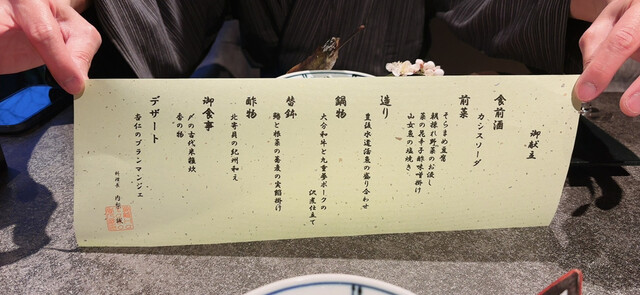 御献立
食前酒
カシスソーダ
前菜
そらまめ豆腐
朝採れ野菜のお浸し
菜の花辛子酢味噌掛け
山女魚の塩焼き
造り
豊後水道活魚の盛り合わせ
鍋物
大分和牛と九重夢ポークの
沢煮仕立て
替鉢
鰆と根菜の蕎麦の実餡掛け
酢物
北寄貝の紀州和え
御食事
〆の古代米雑炊
香の物
デザート
杏仁のブランマンジェ
料理長